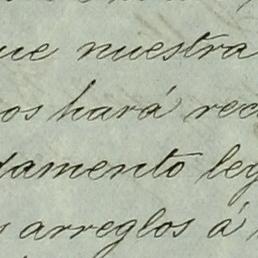 que nuestra
os hará rec
damento leg
s arreglos á